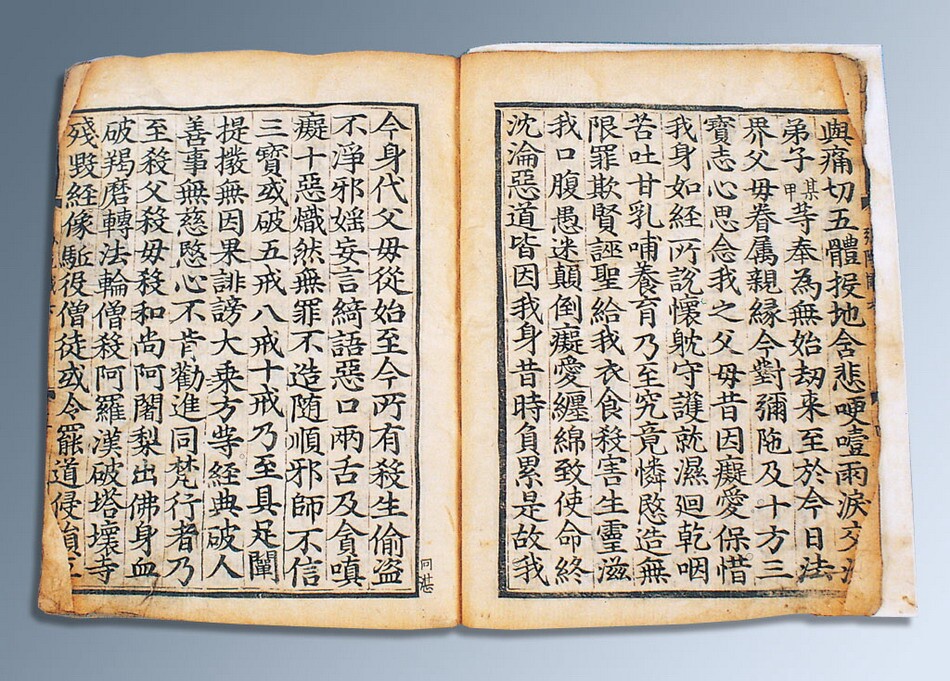 與痛切五體投地含悲哽噎雨淚交
弟子某甲等奉為無始劫來至於今日法
界父母眷属親緣今對彌陁及十方三
寶志心思念我之父母昔因癡愛保惜
我身如經所說懷躭守護就濕廻乾咽
苦吐甘乳哺養育乃至究竟憐愍造無
限罪欺賢誣聖給我衣食殺害生靈滋
我口腹愚迷顛倒癡愛纏綿致使命終
沈淪惡道皆因我身昔時負累是故我
今身代父母從始至今所有殺生偷盗
不淨邪婬妄言綺語惡口兩舌及貪嗔
癡十惡熾然無罪不造随順邪師不信
三寶或破五戒八戒十戒乃至具足闡
提撥無因果誹謗大乘方等經典破人
善事無慈愍心不肯勸進同梵行者乃
至殺父殺母殺和尚阿闍梨出佛身血
破羯磨轉法輪僧殺阿羅漢破塔壞寺
殘毀經像駈役僧徒或令罷道侵損
同湛